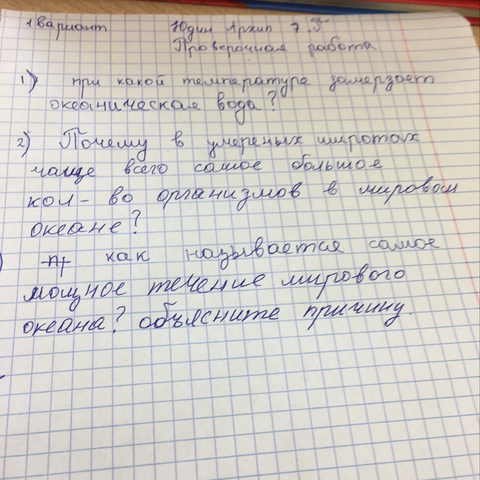 1 вариант Юдин Архип 7 "Г"
Проверочная работа
1) при какой температуре замерзает
океаническая вода?
2) Почему в умереных широтах
чаще всего самое большое
кол-во организмов в мировом
океане?
) как называется самое
мощное течение мирового
океана? объясните причину.